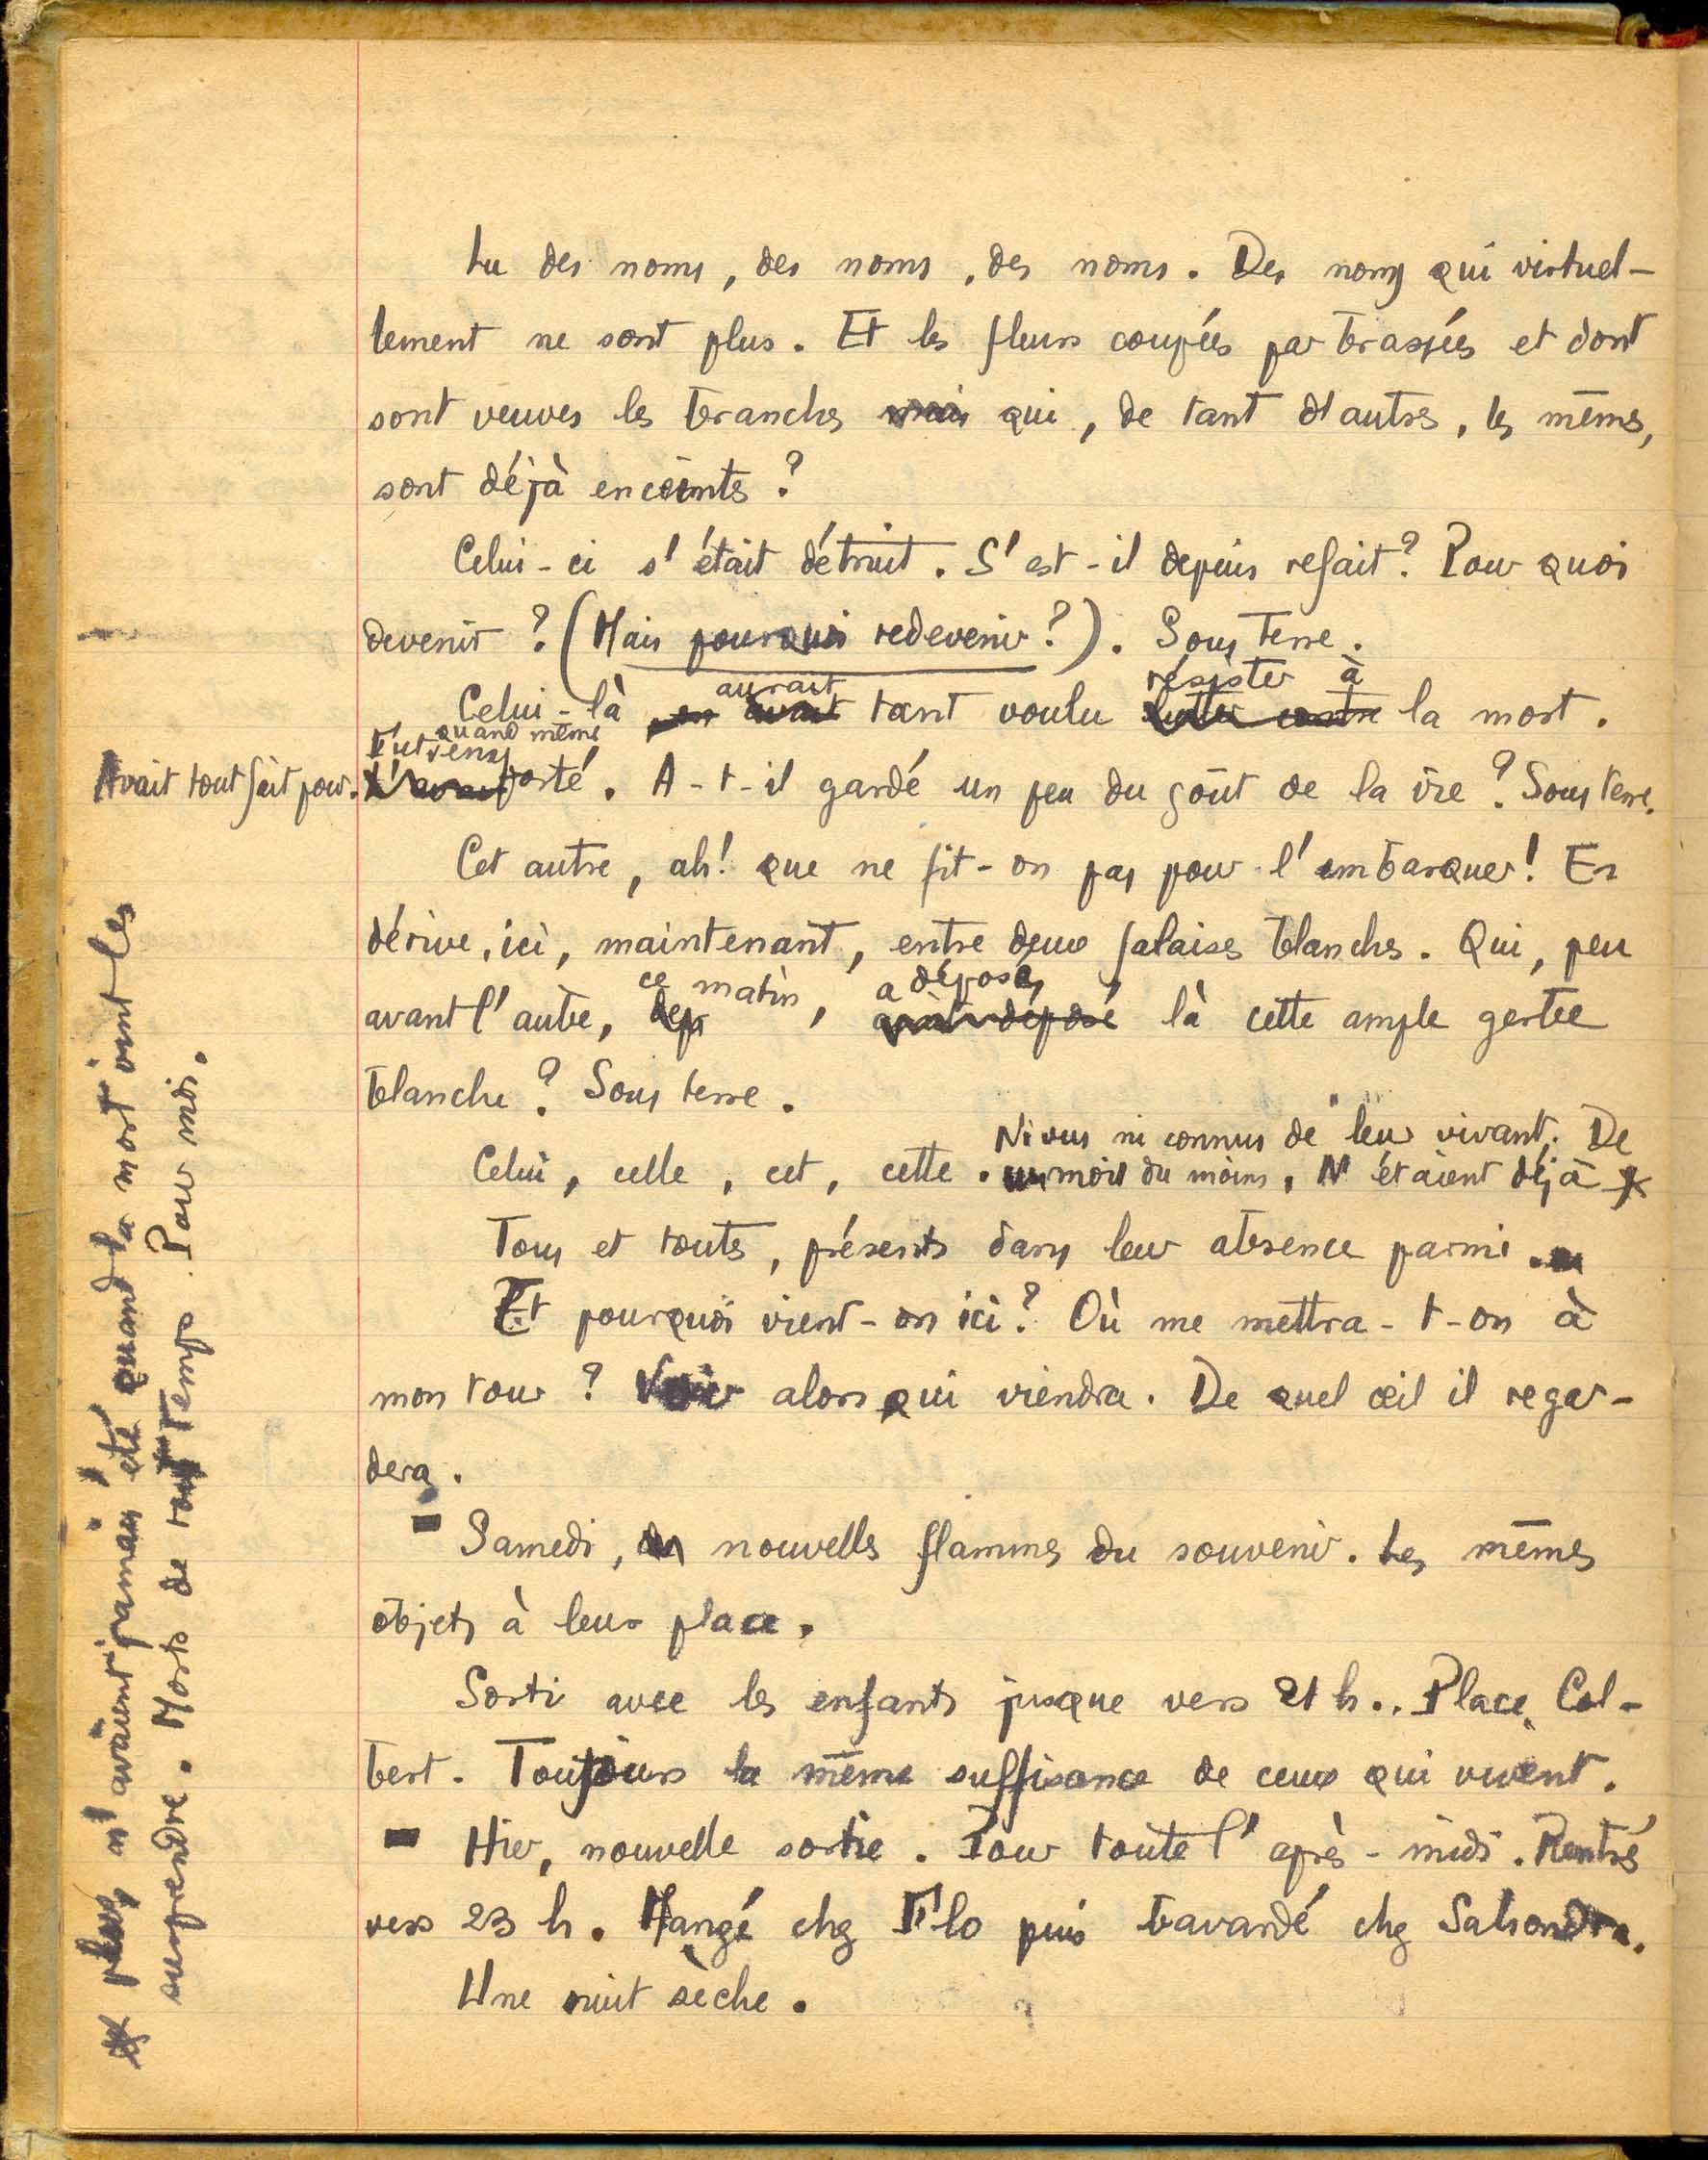 Lu des noms, des noms, des noms. Des noms qui virtuel-
lement ne sont plus. Et les fleurs coupées par brassées et dont
sont veuves les branches mais qui, de tant d'autres, les mêmes,
sont déjà enceintes ?
Celui-ci s'était détruit. S'est-il depuis refait ? Pour quoi
devenir ? (Mais pourquoi redevenir ?). Sous terre.
aurait résister à
Celui-là avait tant voulu lutter contre la mort.
quand même
Fut
Avait tout fait pour. L'avait porté. A-t-il gardé un peu du goût de la vie ? Sous terre.
Cet autre, ah ! que ne fit-on pas pour l'embarquer ! En
dérive, ici, maintenant, entre deux falaises blanches. Qui, peu
ce matin, a déposé,
avant l'aube, avait déposé là cette ample gerbe
blanche ? Sous terre.
Ni vus ni connus de leur vivant. De
Celui, celle, cet, cette. moi du moins. N'étaient déjà *
Tous et toutes, présents dans leur absence parmi.
Et pourquoi vient-on ici ? Où me mettra-t-on à
mon tour ? Voir alors qui viendra. De quel œil il regar-
dera.
- Samedi, nouvelles flammes du souvenir. Les mêmes
objets à leur place.
Sorti avec les enfants jusque vers 21 h.. Place Col-
bert. Toujours la même suffisance de ceux qui vivent.
- Hier, nouvelle sortie. Pour toute l'après-midi. Rentré
vers 23 h. Mangé chez Flo puis bavardé chez Sahondra.
Une nuit sèche.
* plus, n'avaient jamais été quand la mort vint les
surprendre. Morts de tout temps. Pour moi.